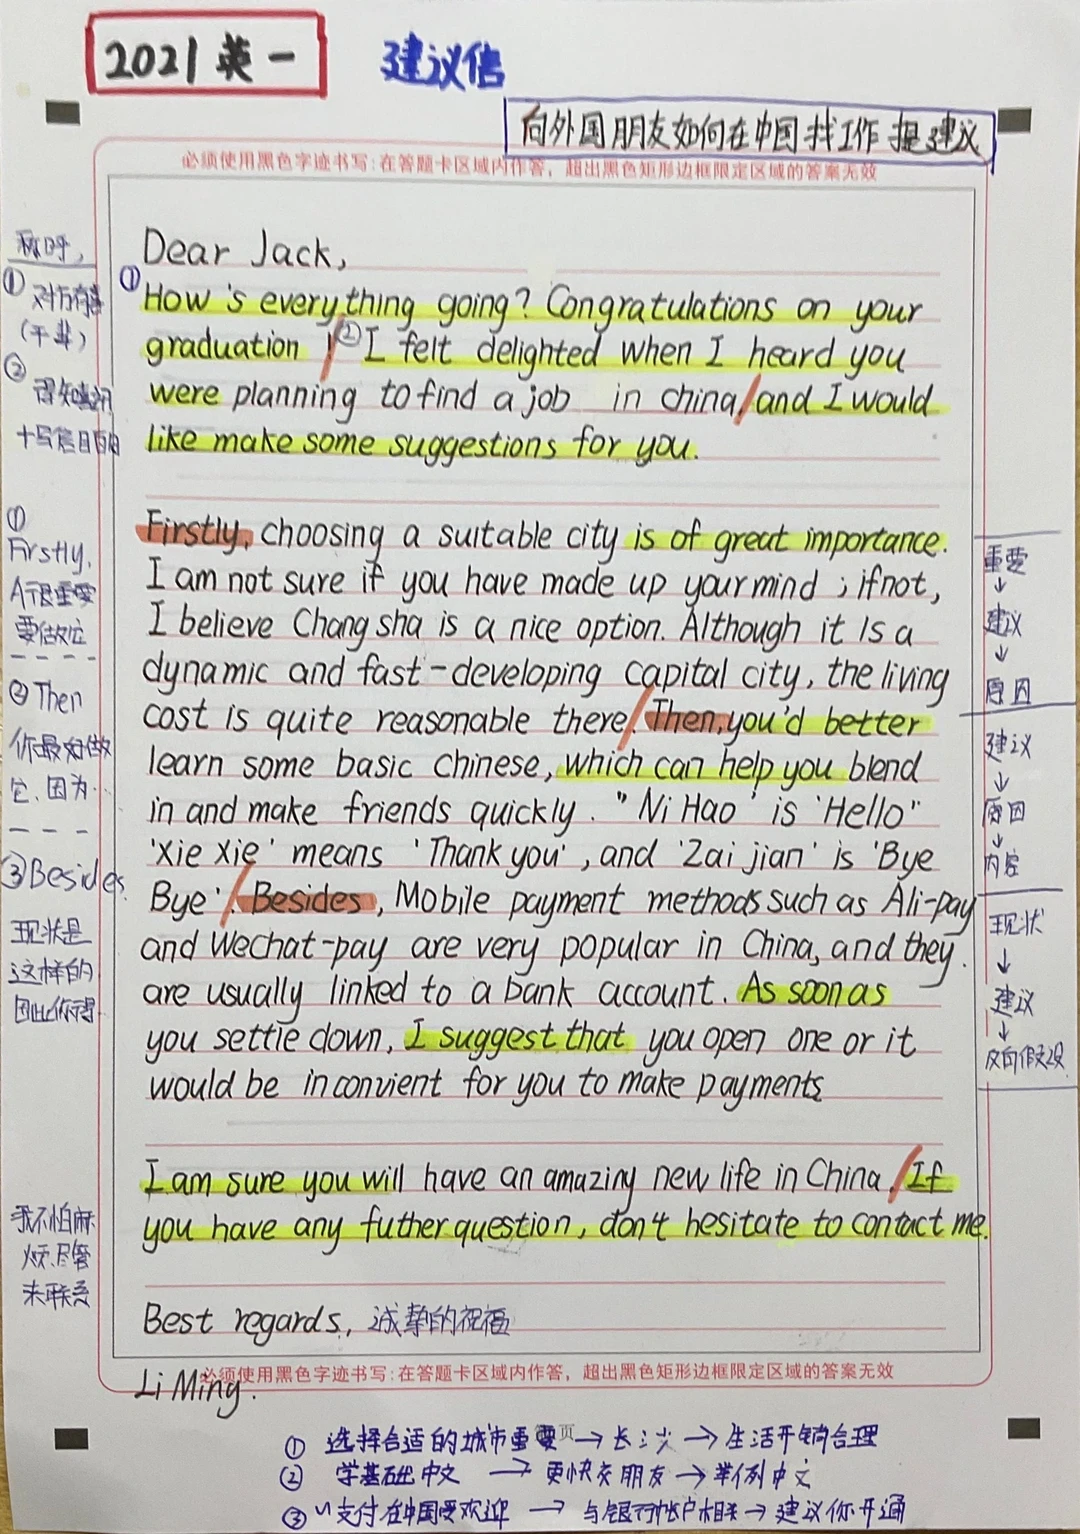 2021 英一
建议信
向外国朋友如何在中国找工作 提建议
必须使用黑色字迹书写:在答题卡区域内作答，超出黑色矩形边框限定区域的答案无效
称呼,
① 对方有喜
(干辈)
②
得知
+写信目的
Dear Jack,
① How's everything going? Congratulations on your
graduation ! ② I felt delighted when I heard you
were planning to find a job in china, and I would
like make some suggestions for you.
①
Firstly,
A很重要
要做它
② Then
你最好做
它,因为…
③ Besides,
现状是
这样的
因此你得
Firstly, choosing a suitable city is of great importance.
I am not sure if you have made up your mind ; if not,
I believe Chang sha is a nice option. Although it Is a
dynamic and fast-developing capital city, the living
cost is quite reasonable there. Then, you'd better
learn some basic chinese, which can help you blend
in and make friends quickly. "Ni Hao' is 'Hello"
'Xie Xie' means 'Thank you', and 'Zai jian' is 'Bye
Bye'. Besides, Mobile payment methods such as Ali-pay
and Wechat-pay are very popular in China, and they
are usually linked to a bank account. As soon as
you settle down, I suggest that you open one or it
would be inconvient for you to make payments
重要
↓
建议
↓
原因
建议
↓
原因
↓
内容
现状
↓
建议
↓
反向假设
我不怕麻
烦,尽管
来联系
I am sure you will have an amazing new life in China. If
you have any futher question, don't hesitate to contact me.
Best regards, 诚挚的祝福
必须使用黑色字迹书写:在答题卡区域内作答，超出黑色矩形边框限定区域的答案无效
Li Ming.
页
① 选择合适的城市重要 → 长沙 → 生活开销合理
② 学基础中文 → 更快交朋友 → 举例中文
③ "支付在中国受欢迎 → 与银行帐户相关 → 建议你开通